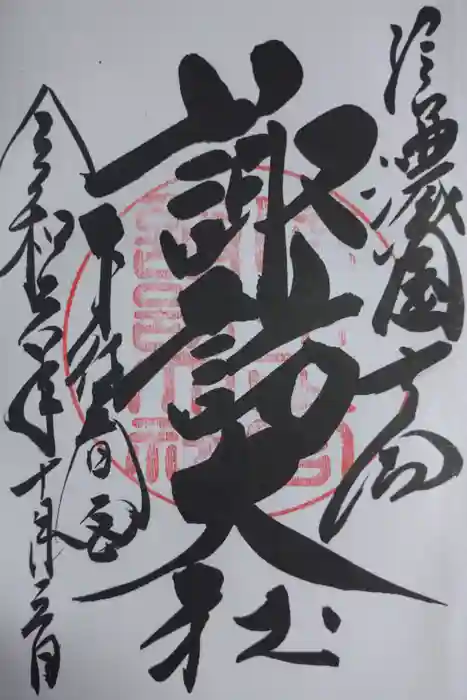 信濃國一宮
諏訪大社
下社春宮
令和六年十月三日